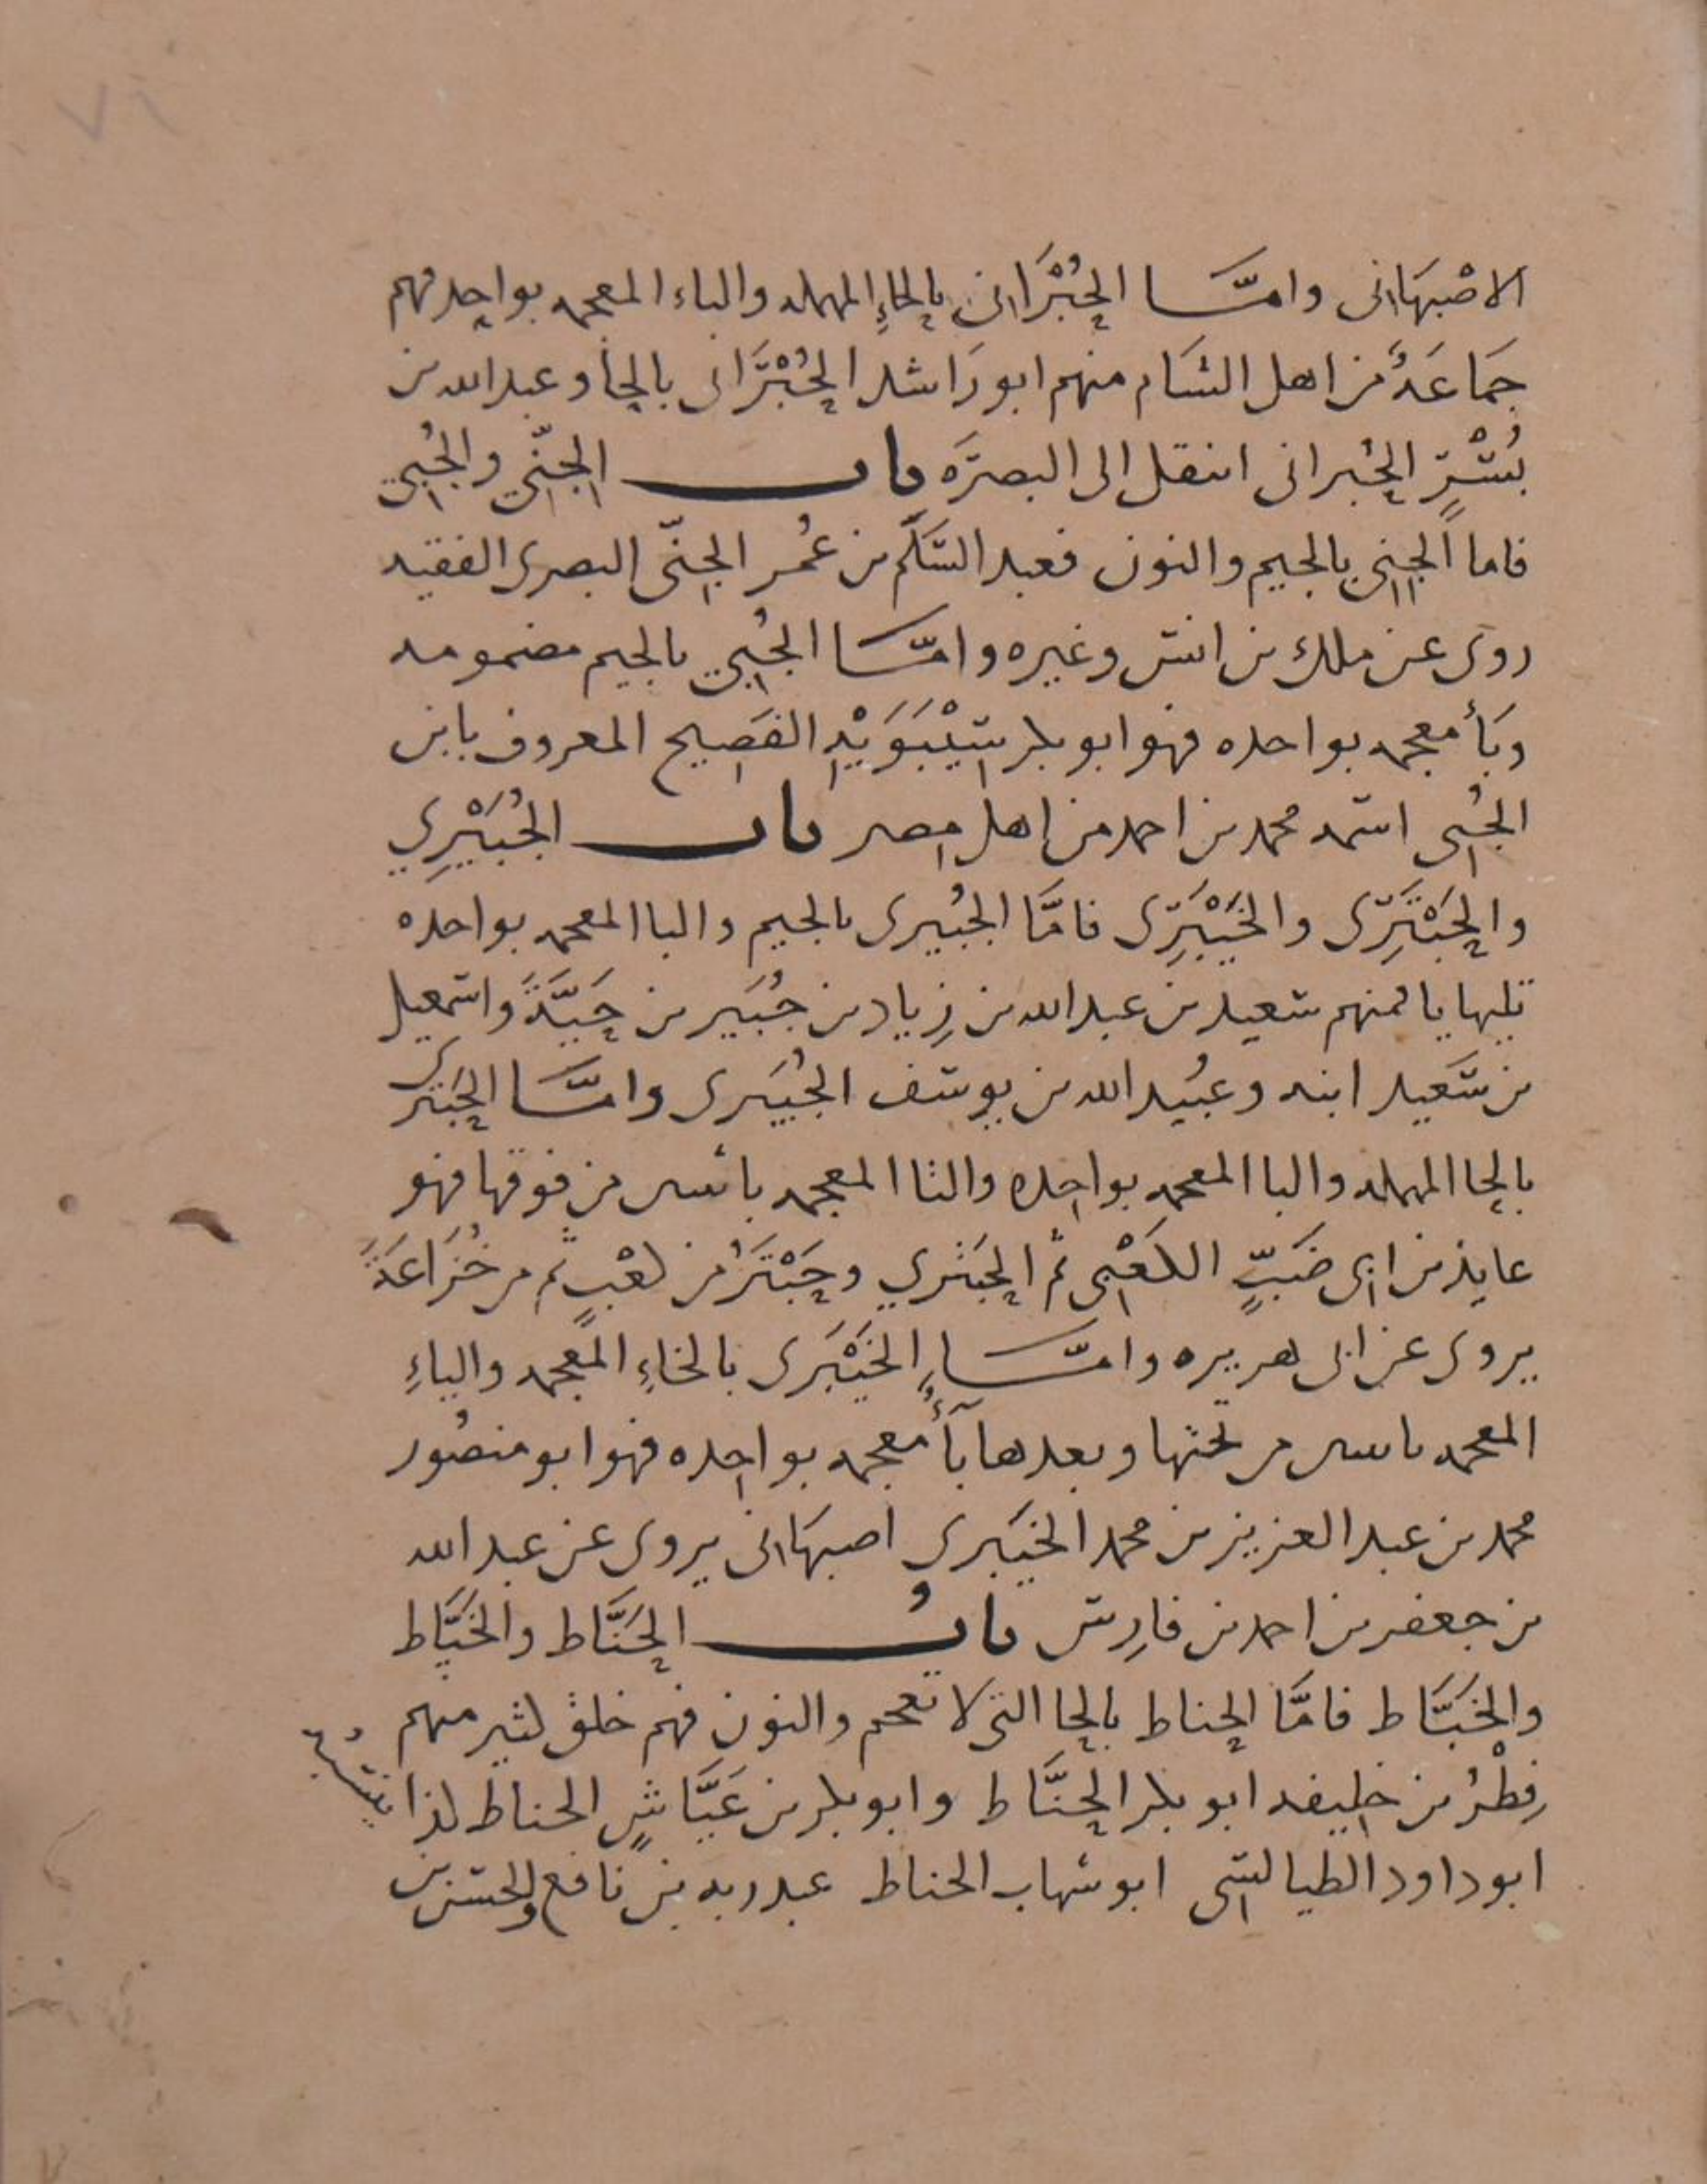 ٧٦
الاصْبهَانى وامَّا الحُبْرَانى بالحاءِ المهمله والباء المعجمه بواحده فهم
جمَاعَةٌ من اهل الشَام منهم ابو رَاشد الحُبْرَانى بالحا وعبد الله بن
بُسْرٍ الحُبرانى انتقل الى البصرَه باب الجِنّي والجُبي
فاما الجِنِي بالجيم والنون فعبد السَّلَم بن عُمر الجنّى البصرى الفقيه
روى عن ملك بن انس وغيره وامَّا الجُبِي بالجيم مضمومه
وبَأ معجمه بواحده فهو ابو بكر سِيْبَوَيْهِ الفَصِيح المعروف بابن
الجُبى اسمه محمد بن احمد من اهل مصر باب الجُبَيْرِي
والحَبْتَرِى والخَيْبَرِى فامَّا الجُبيرى بالجيم والبا المعجمه بواحده
تليها يا فمنهم سعيد بن عبد الله بن زِياد بن جُبَير بن حَيَّةَ واسمعيل
بن سَعيد ابنه وعبُيد الله بن يوسف الجُبَيرى وامَّا الحَبترى
بالحا المهمله والبا المعجمه بواحده والتا المعجمه باثنين من فوقها فهو
عايذ بن ابى ضَبٍّ الكَعْبى ثم الحَبتري وحَبْتَرٌ من كعْبٍ ثم من خُزَاعَةَ
يروى عن ابى هريره وامَّا الخَيْبَرى بالخاءِ المعجمه والياءِ
المعجمه باثنين من تحتها وبعدها بَأٌ معجمه بواحده فهو ابو منصُور
محمد بن عبد العزيز بن محمد الخيبَرى اصبهَانى يروى عن عبد الله
بن جعفر بن احمد بن فارِس بابُ الحَنَّاط والخَيَّاط
والخَبَّاط فامَّا الحناط بالحا التى لا تعجم والنون فهم خلق كثير منهم
فِطْرُ بن خليفه ابو بكر الحَنَّاط وابو بكر بن عَيَّاشٍ الحناط كذا ينسُبه
ابو داود الطيالسى ابو شهاب الحناط عبد ربه بن نافع والحسن بن